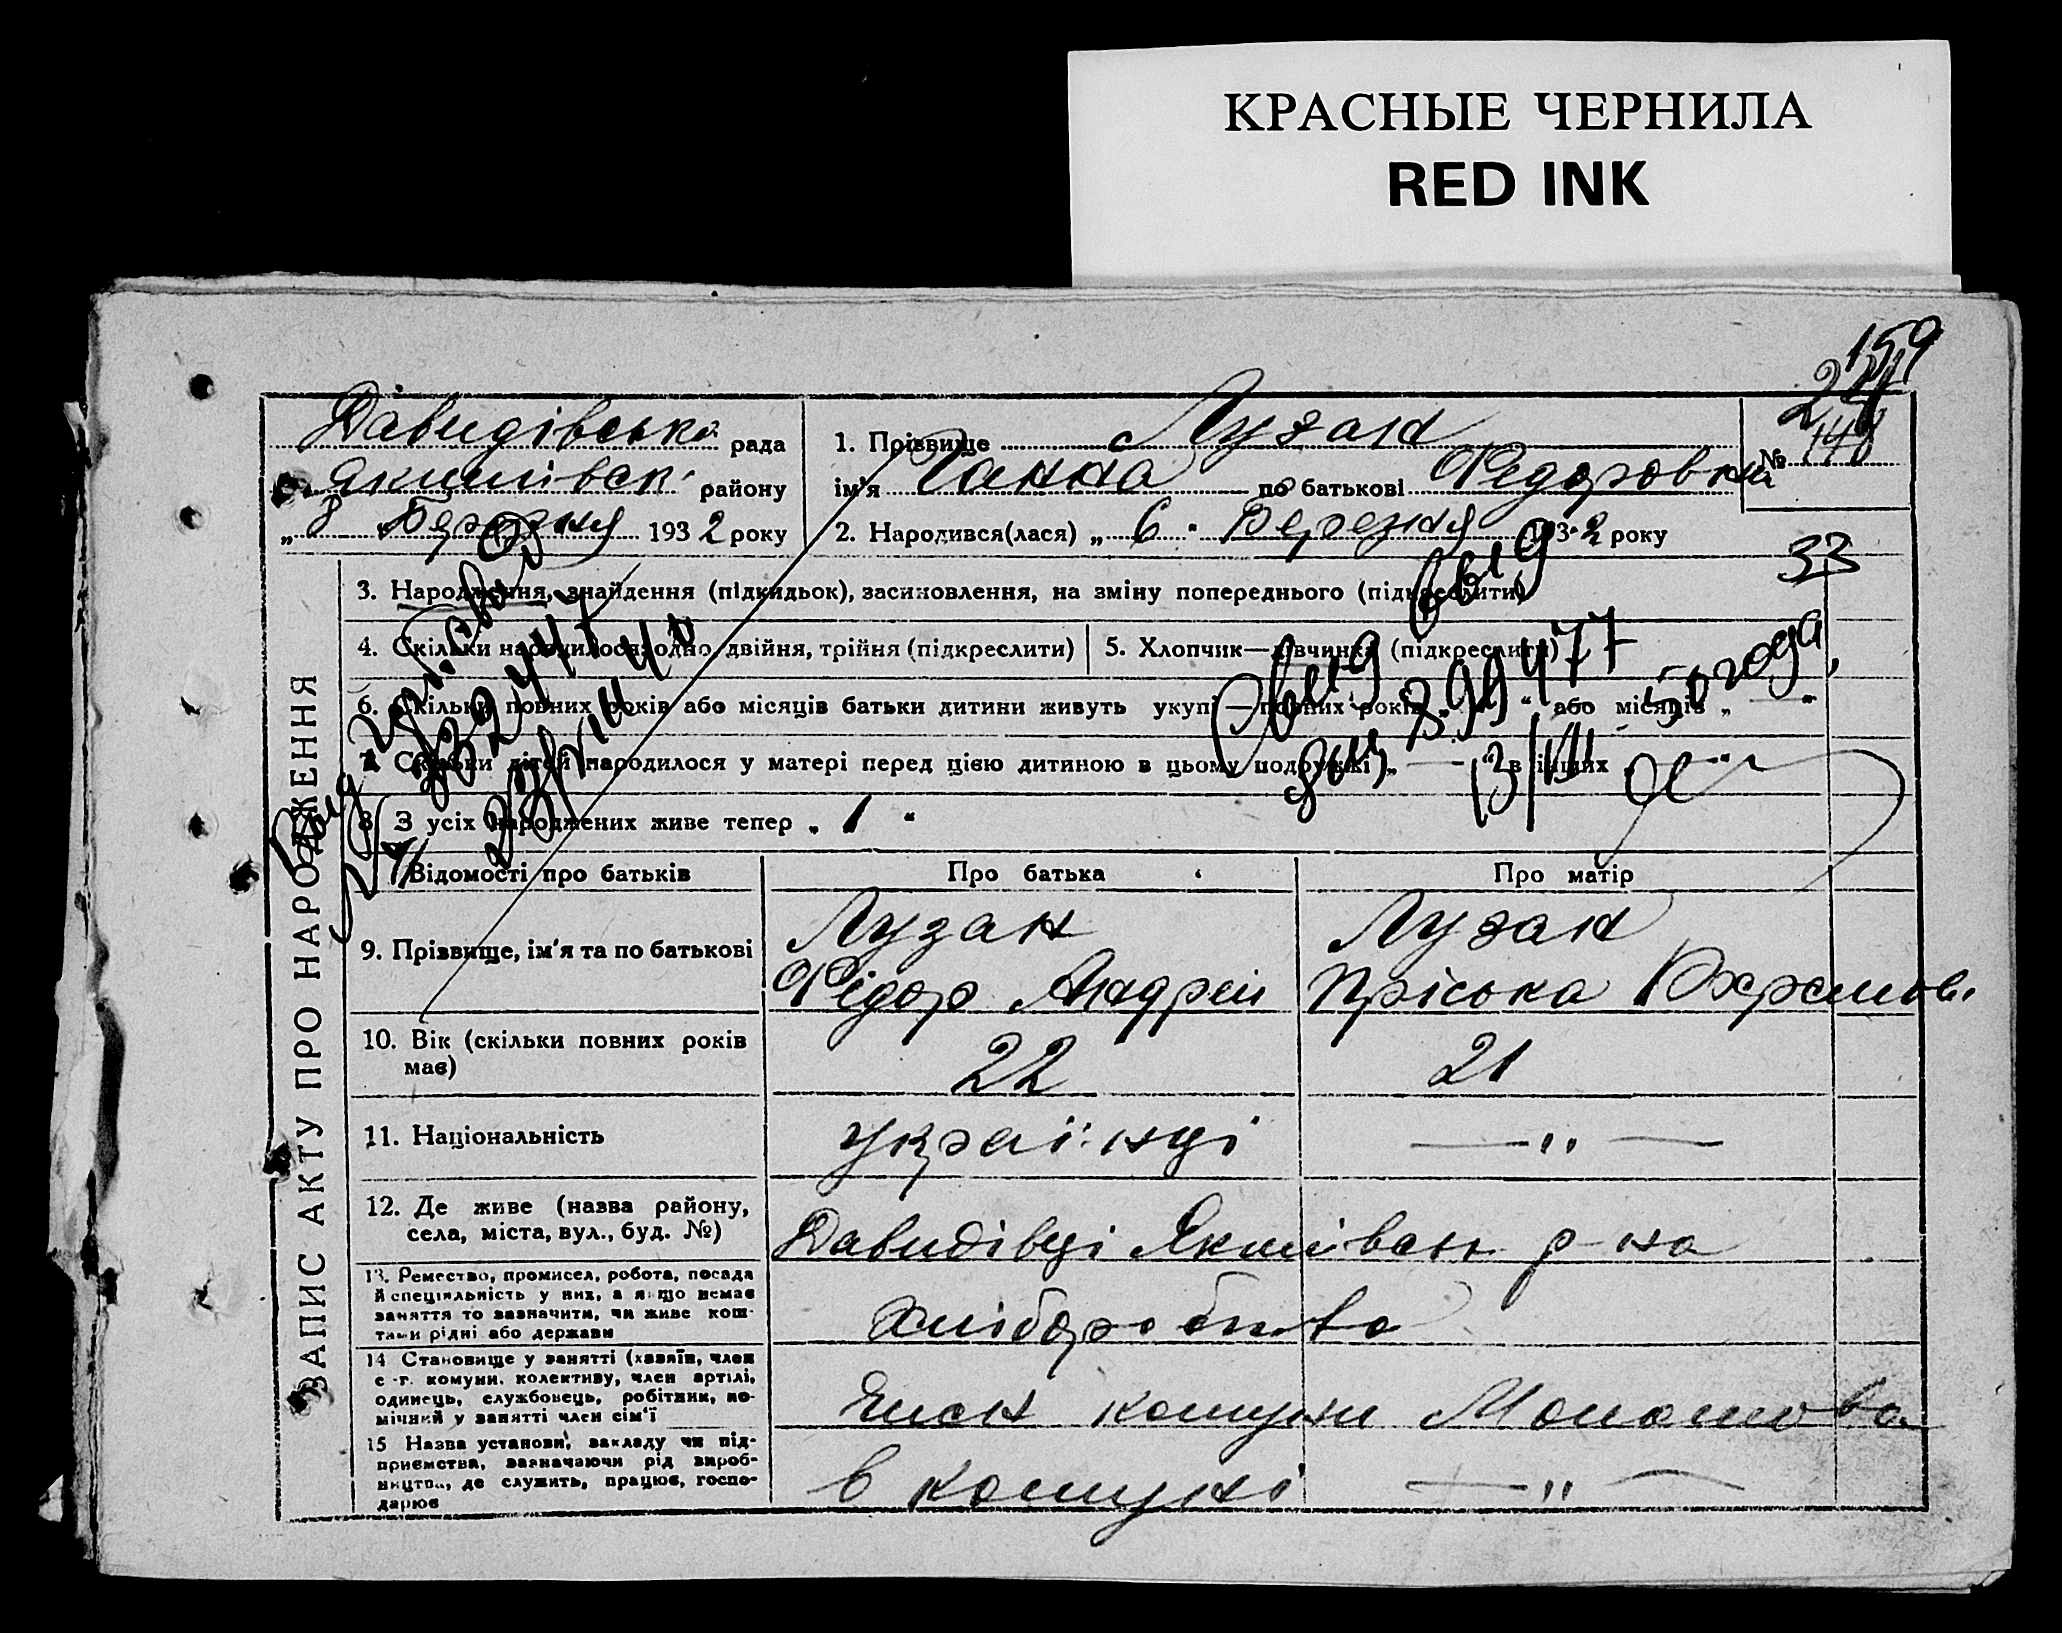 КРАСНЫЕ ЧЕРНИЛА
RED INK
159
148
Давидівська рада
Якимівськ району
„ 8 Березня 1932 року
1. Прізвище Лузан
№
ім'я Ганна по батькові Федоровна
2. Народився(лася) „ 6 " Березня 1932 року
33
ЗАПИС АКТУ ПРО НАРОДЖЕННЯ
3. Народження, знайдення (підкидьок), засиновлення, на зміну попереднього (підкреслити)
4. Скільки народилося: одно, двійня, трійня (підкреслити)
5. Хлопчик—дівчинка (підкреслити)
6. Скільки повних років або місяців батьки дитини живуть укупі — повних років „ “ або місяців „ — “
7. Скільки дітей народилося у матері перед цією дитиною в цьому подружжі „ — “ в інших
8. З усіх народжених живе тепер „ 1 “
13/VII 50 года
Відомості про батьків
Про батька
Про матір
9. Прізвище, ім'я та по батькові
Лузан
Федор Андрей
Лузан
Пріська
10. Вік (скільки повних років має)
22
21
11. Національність
україінці
— " —
12. Де живе (назва району, села, міста, вул., буд. №)
Давидівці Якимівськ р-на
13. Ремество, промисел, робота, посада й спеціяльність у них, а якщо немає заняття то зазначити, чи живе коштами рідні або держави
Хліборобство
14 Становище у занятті (хазяїн, член с.-г. комуни, колективу, член артілі, одинець, службовець, робітник, помічний у занятті член сім'ї
Член комуни
15 Назва установи, закладу чи підприємства, зазначаючи рід виробництва, де служить, працює, господарює
в комуні
— " —